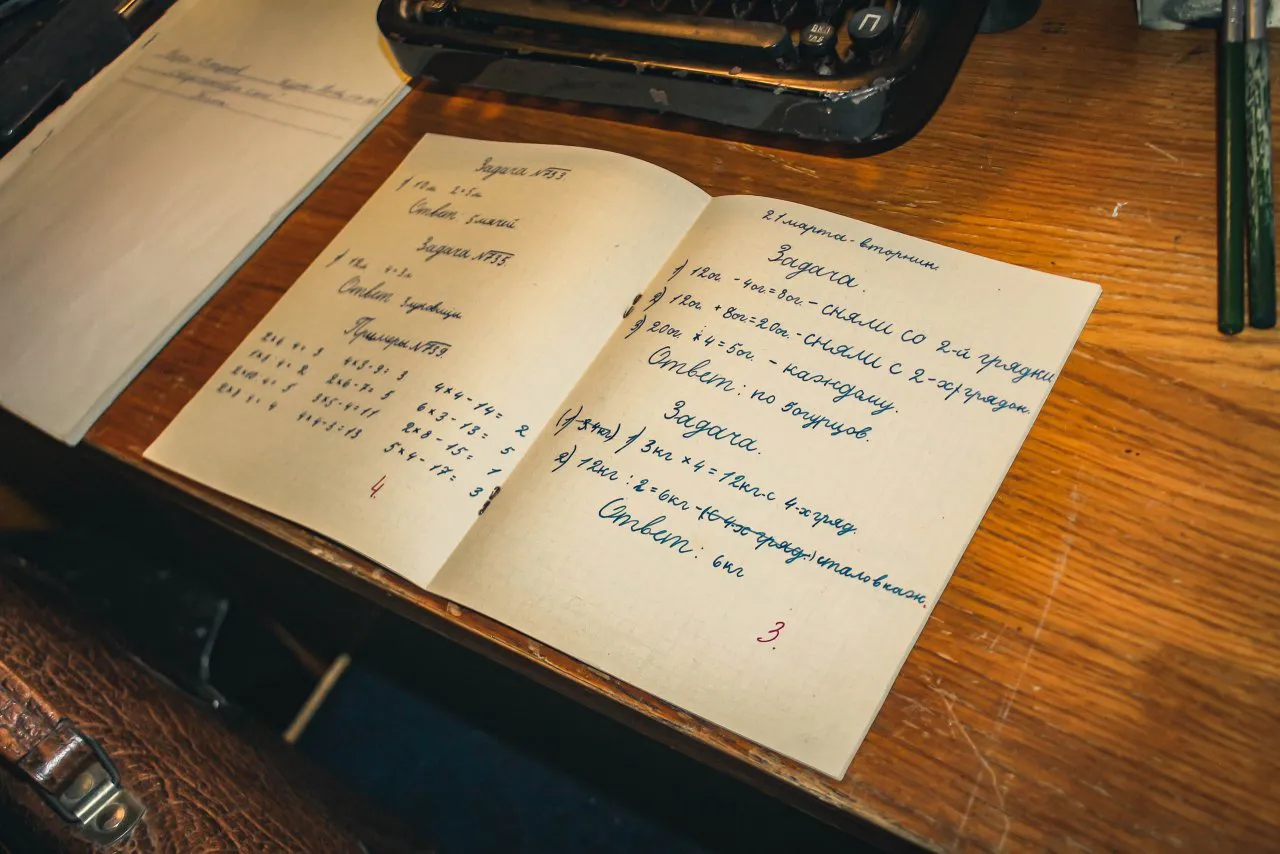 П
Задача №733.
1) 10м 2=5м
Ответ 5 мячей
Задача №735.
1) 12м 4=3м
Ответ 3 пуговицы
Примеры №739.
2×6 4= 3 4×3-9= 3 4×4-14= 2
1×8 4= 2 2×6-7= 5 6×3-13= 5
2×10 4= 5 3×5-4=11 2×8-15= 1
2×8 4= 4 4×4-3=13 5×4-17= 3
4.
21 марта - вторник.
Задача.
1) 12ог. -4ог.=8ог. - сняли со 2-й грядки
2) 12ог. +8ог.=20ог. - сняли с 2-х грядок.
3) 20ог. ×4=5ог. - каждому.
Ответ: по 5огурцов.
Задача.
1) 3кг ×4=12кг-с 4-х гряд.
2) 12кг : 2=6кг - (с 4-х гряд.) сталов кажн.
Ответ: 6кг
3.